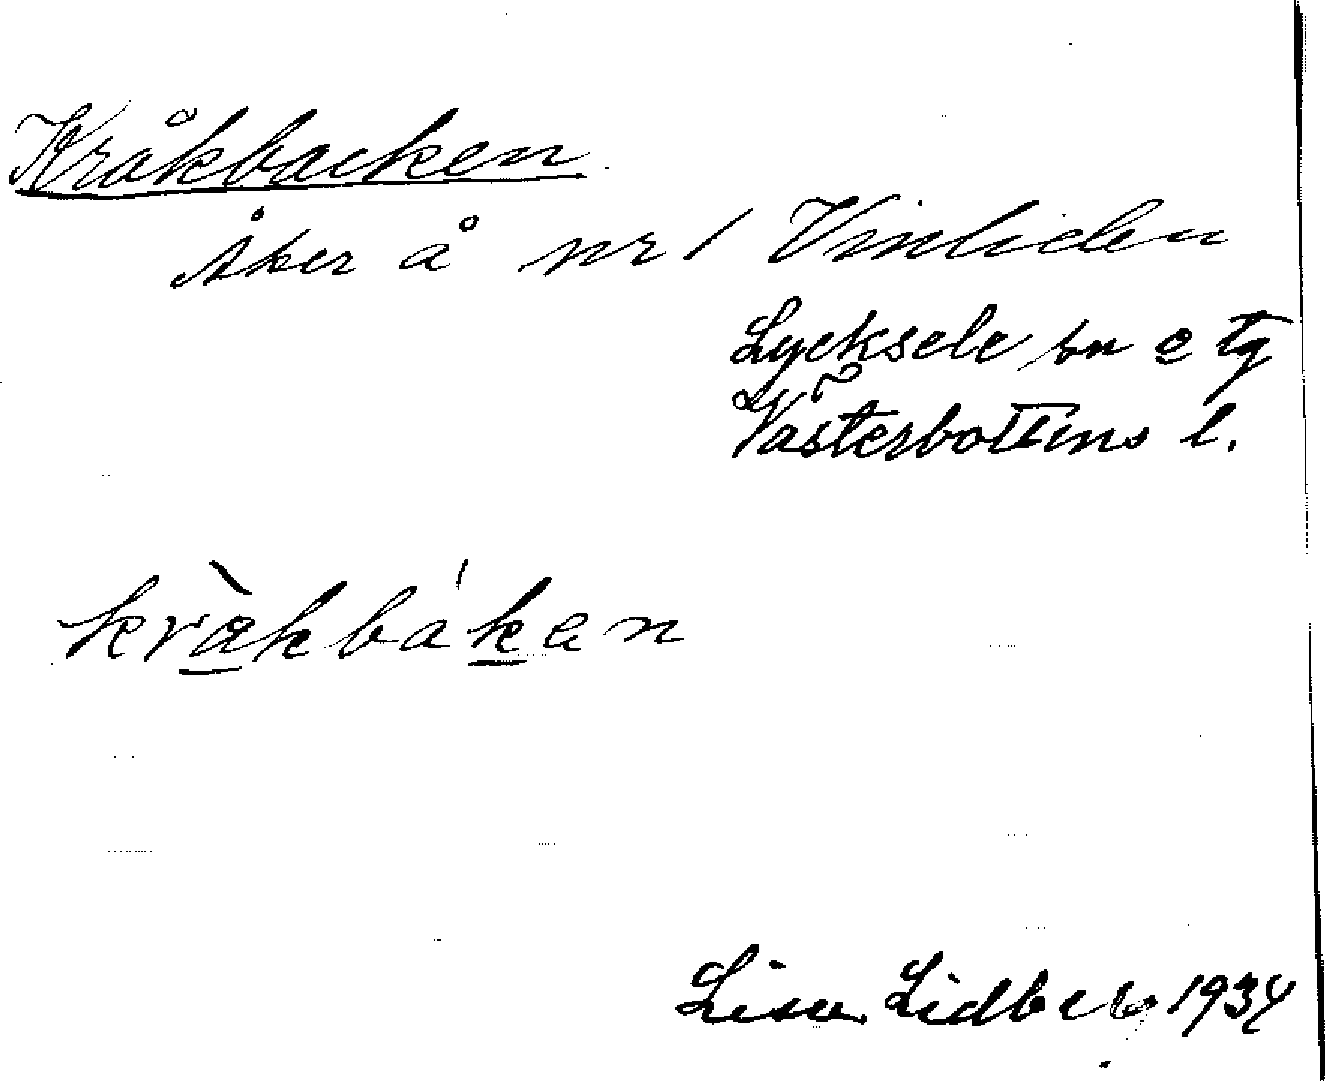 Kråkbacken
åker å nr 1 Vinliden
Lycksele sn o tg
Västerbottens l.
kràkbákan
Lisa Lidberg 1934